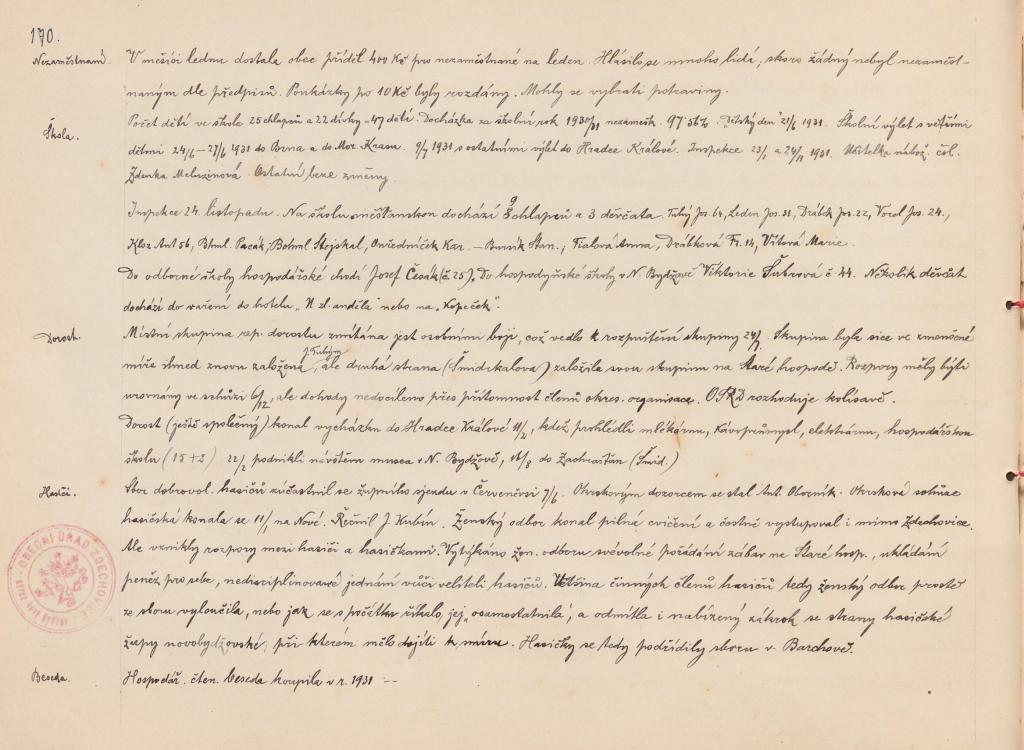 170.
Nezaměstnaní. V měsíci lednu dostala obec příděl 400 Kč pro nezaměstnané na leden. Hlásilo se mnoho lidí, skoro žádný nebyl nezaměst-
naným dle předpisů. Poukázky po 10 Kč byly rozdány. Mohly se vybrati potraviny.
Škola. Počet dětí ve škole 25 chlapců a 22 dívky = 47 dětí. Docházka za školní rok 1930/31 nezamešk. 97·56%. "Dětský den" 21/6 1931. Školní výlet s většími
dětmi 24/6 - 27/6 1931 do Brna a do Mor. Krasu. 9/7 1931 s ostatními výlet do Hradce Králové. Inspekce 23/1 a 24/11 1931. Učitelka nábož. čsl.
Zdenka Meluzinová. Ostatní beze změny.
Inspekce 24. listopadu. Na školu měšťanskou dochází 9 chlapců a 3 děvčata. Tuhý Jos. 64, Leden Jos. 31, Drábek Jos. 22, Vorel Jos. 24,
Kloz Ant 56, Bhml. Pacák, Bohml Stejskal, Ouředníček Kar. - Bursík Stan., Fialová Anna, Drábková Fr. 14, Vítová Marie.
Do odborné školy hospodářské chodí Josef Česák (č. 25), Do hospodyňské školy v N. Bydžově Viktorie Šubrová č 44. Několik děvčat
dochází do vaření do hotelu "U zl. anděla" nebo na "Kopeček".
Dorost. Místní skupina rep. dorostu zmítána jest osobními boji, což vedlo k rozpuštění skupiny 24/7. Skupina byla sice ve zmenšené
míře ihned znovu založena J. Tuhým, ale druhá strana (Šmidrkalova) založila svou skupinu na Staré hospodě. Rozpory měly býti
urovnány ve schůzi 6/12, ale dohody nedocíleno přes přítomnost členů okres. organisace. ORD rozhoduje kolísavě.
Dorost (ještě společný) konal vycházku do Hradce Králové 11/2, kdež prohlédli mlékárnu, Kávoprůmysl, elektrárnu, hospodářskou
školu (15+2) 22/2 podnikli návštěvu musea v N. Bydžově, 16/8 do Zachrašťan (Šmid.)
Hasiči. Sbor dobrovol. hasičů zúčastnil se župního sjezdu v Červeněvsi 7/6. Okrskovým dozorcem se stal Ant. Oborník. Okrsková schůze
hasičská konala se 11/1 na Nové. Řečnil J. Kubín. Ženský odbor konal pilná cvičení a čestně vystupoval i mimo Zdechovice.
Ale vznikly rozpory mezi hasiči a hasičkami. Vytýkáno žen. odboru svévolné pořádání zábav na Staré hosp., ukládání
peněz pro sebe, nedisciplinované jednání vůči veliteli hasičů. Většina činných členů hasičů tedy ženský odbor prostě
ze sboru vyloučila, nebo jak se s počátku říkalo, jej "osamostatnila", a odmítla i nabízený zákrok se strany hasičské
župy novobydžovské, při kterém mělo dojíti k míru. Hasičky se tedy podřídily sboru v Barchově.
Beseda. Hospodář. čten. beseda koupila v r. 1931 --
OBECNÍ ÚŘAD ZDECHOVICE